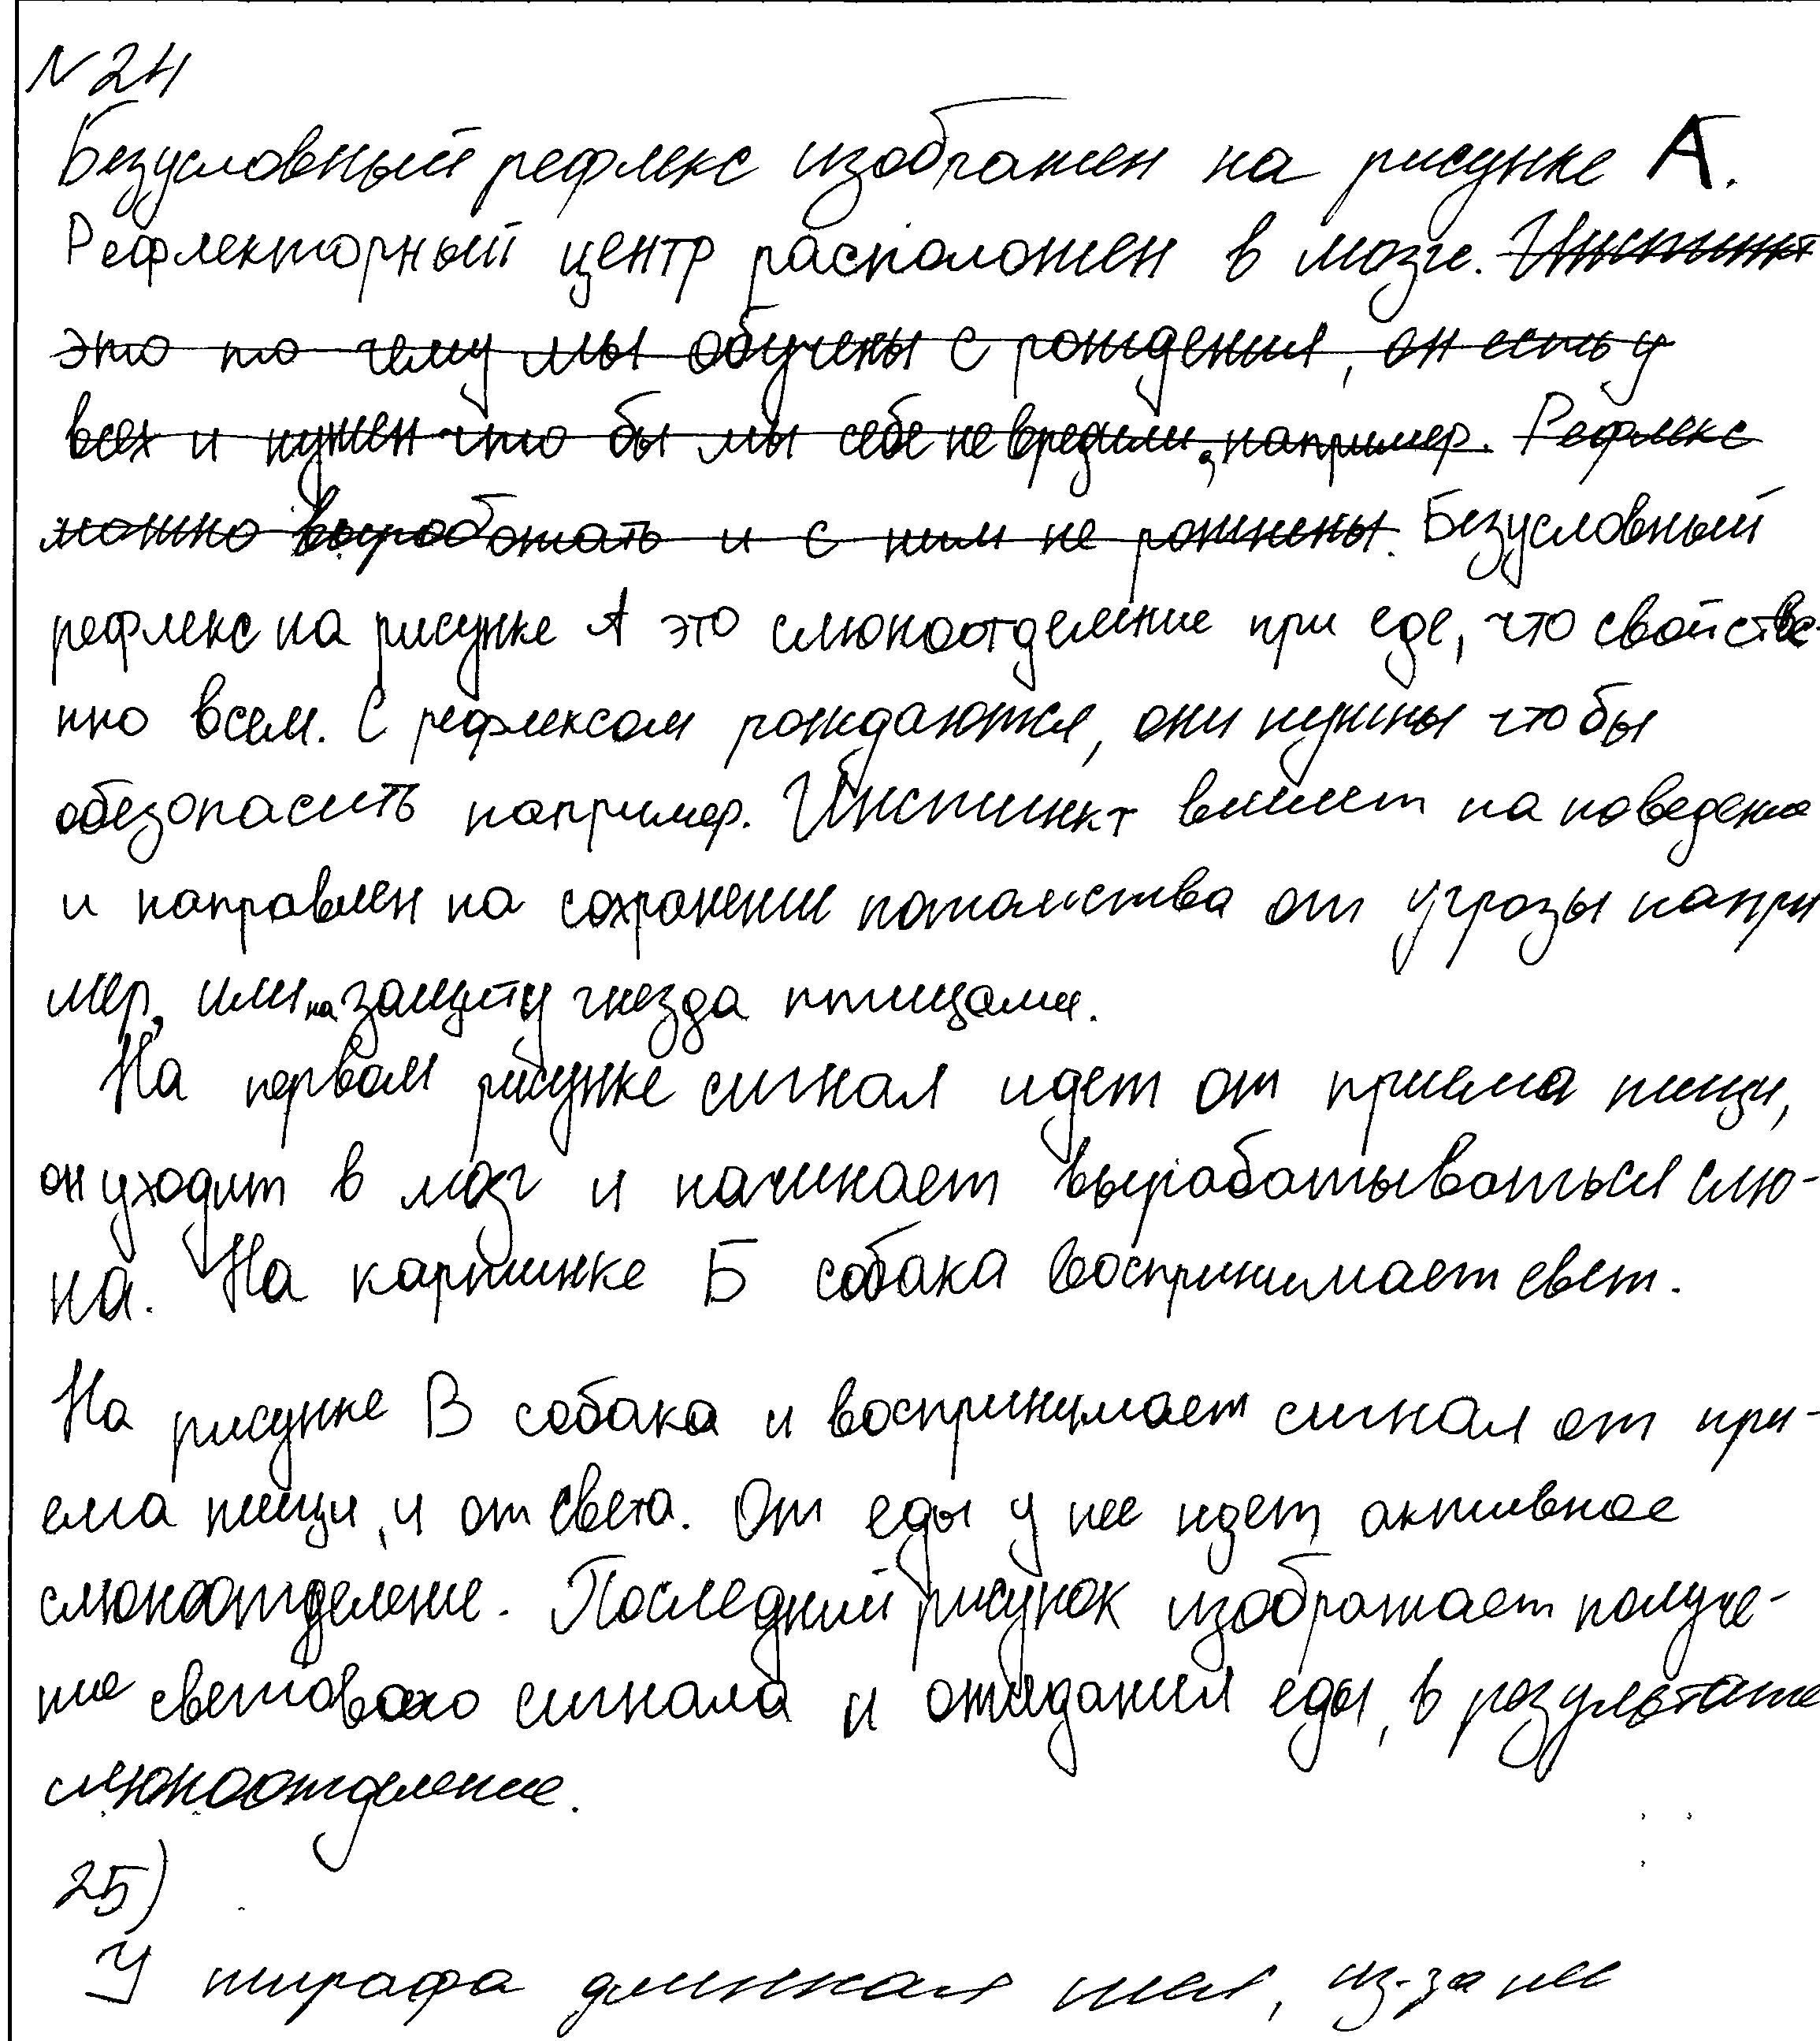 N 24
Безусловный рефлекс изображен на рисунке А.
Рефлекторный центр расположен в мозге. Инстинкт
это то чему мы обучены с рождения, он есть у
всех и нужен что бы мы себе не вредили, например. Рефлекс
можно выработать и с ним не рождены. Безусловный
рефлекс на рисунке А это слюноотделение при еде, что свойстве-
нно всем. С рефлексом рождаются, они нужны чтобы
обезопасить например. Инстинкт влияет на поведение
и направлен на сохранение потомства от угрозы напри
мер, или на защиту гнезда птицами.
На первом рисунке сигнал идет от приема пищи,
он уходит в мозг и начинает вырабатываться слю-
на. На картинке Б собака воспринимает свет.
На рисунке В собака и воспринимает сигнал от при-
ема пищи, и от света. От еды у нее идет активное
слюноотделение. Последний рисунок изображает получе-
ние светового сигнала и ожидания еды, в результате
слюноотделение.
25)
У жирафа длинная шея, из-за нее